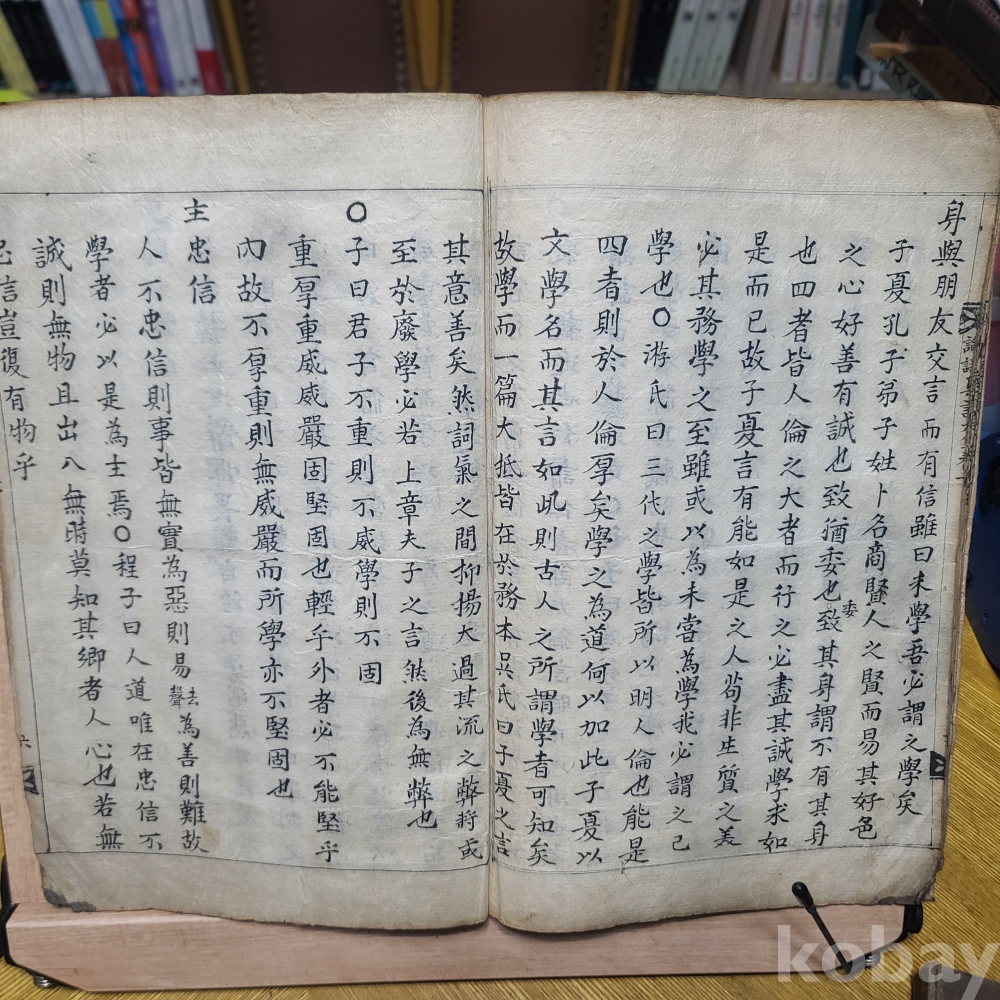 身與朋友交言而有信雖曰未學吾必謂之學矣
子憂孔子弟子姓卜名商賢人之賢而易其好色
之心好善有誠也致猶委也致其身謂不有其身
委
也四者皆人倫之大者而行之必盡其誠學求如
是而已故子憂言有能如是之人苟非生質之美
必其務學之至雖或以為未嘗為學我必謂之已
學也○游氏曰三代之學皆所以明人倫也能是
四者則於人倫厚矣學之為道何以加此子憂以
文學名而其言如此則古人之所謂學者可知矣
故學而一篇大抵皆在於務本吳氏曰子憂之言
其意善矣然詞氣之間抑揚大過其流之弊將或
至於廢學必若上章夫子之言然後為無弊也
○子曰君子不重則不威學則不固
重厚重威威嚴固堅固也輕乎外者必不能堅乎
內故不厚重則無威嚴而所學亦不堅固也
主忠信
人不忠信則事皆無實為惡則易去聲為善則難故
學者必以是為主焉○程子曰人道唯在忠信不
誠則無物且出入無時莫知其鄉者人心也若無
忠信豈復有物乎
六
kobay